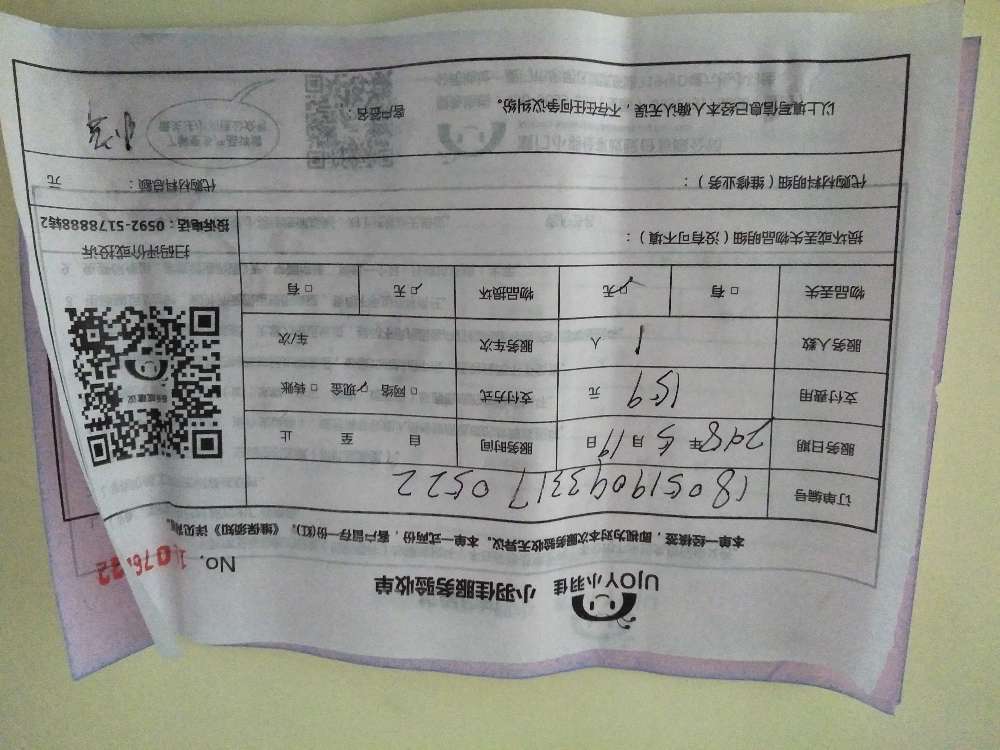 UJOY小羽佳 小羽佳服务验收单
No. 1076122
本单一经核签，即视为对本次服务验收无异议。本单一式两份，客户留存一份(红)。《维保须知》详见背面。
订单编号 180519093317 0522
服务日期 2018年5月19日 服务时间 自 至 止
支付费用 159 元 支付方式 □网络 ☑现金 □转账
服务人数 1 人 服务车次 车/次
物品丢失 □有 ☑无 物品损坏 ☑无 □有
损坏或丢失物品明细（没有可不填）：
扫码评价或投诉
投诉电话：0592-5178888转2
代购材料明细（维修业务）： 代购材料总额： 元
以上填写信息已经本人确认无误，不存在任何争议纠纷。 客户签名：